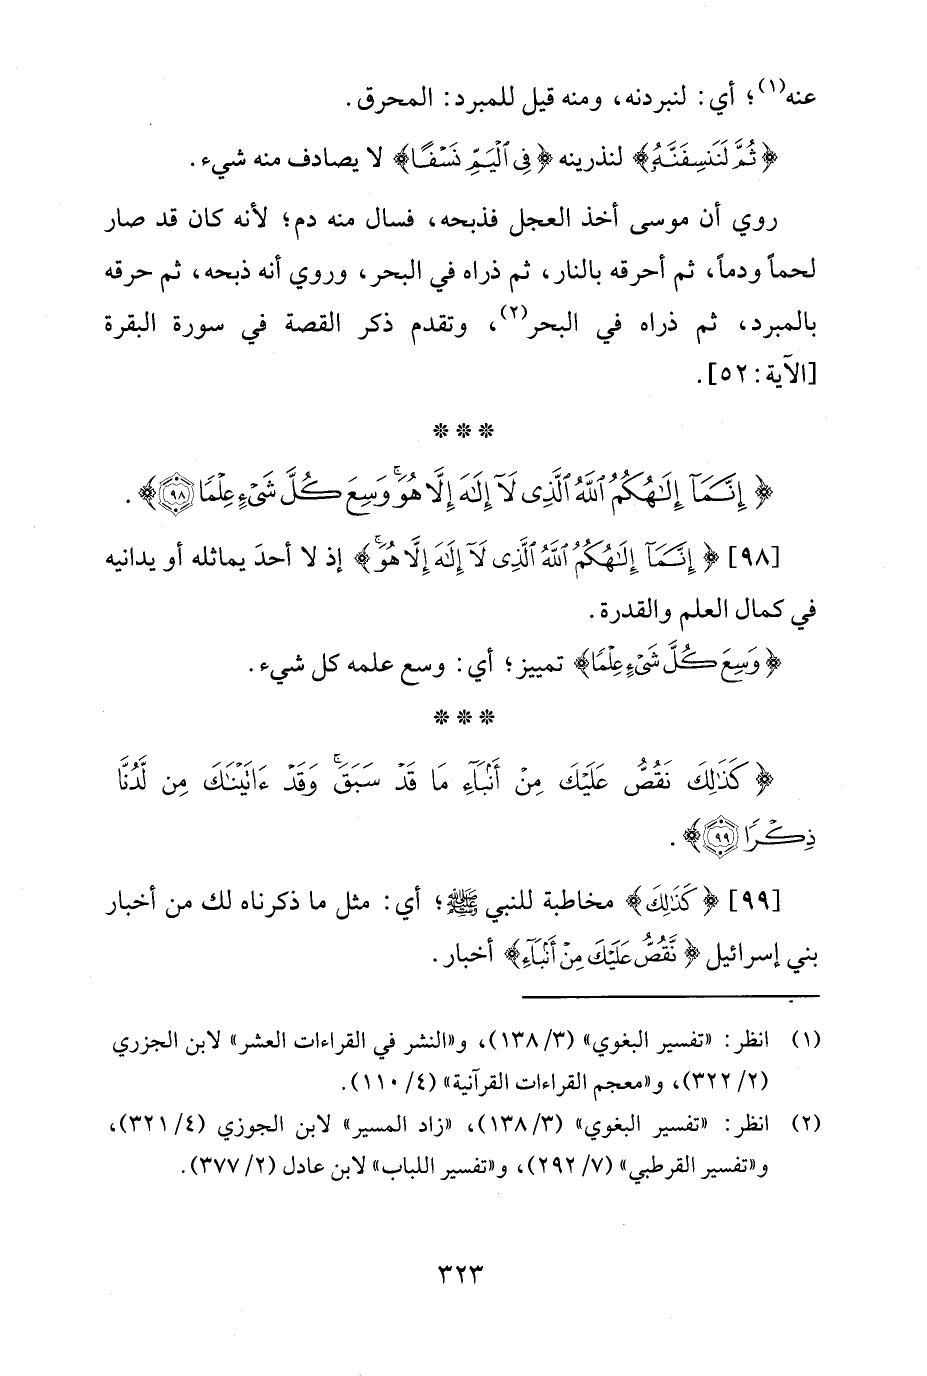 عنه(١)؛ أي: لنبردنه، ومنه قيل للمبرد: المحرق.
﴿ثُمَّ لَنَنسِفَنَّهُ﴾ لنذرينه ﴿فِي ٱلْيَمِّ نَسْفًا﴾ لا يصادف منه شيء.
روي أن موسى أخذ العجل فذبحه، فسال منه دم؛ لأنه كان قد صار
لحماً ودماً، ثم أحرقه بالنار، ثم ذراه في البحر، وروي أنه ذبحه، ثم حرقه
بالمبرد، ثم ذراه في البحر(٢)، وتقدم ذكر القصة في سورة البقرة
[الآية: ٥٢].
* * *
﴿إِنَّمَآ إِلَٰهُكُمُ ٱللَّهُ ٱلَّذِى لَآ إِلَٰهَ إِلَّا هُوَ ۚ وَسِعَ كُلَّ شَىْءٍ عِلْمًا ٩٨﴾.
[٩٨] ﴿إِنَّمَآ إِلَٰهُكُمُ ٱللَّهُ ٱلَّذِى لَآ إِلَٰهَ إِلَّا هُوَ ۚ﴾ إذ لا أحدَ يماثله أو يدانيه
في كمال العلم والقدرة.
﴿وَسِعَ كُلَّ شَىْءٍ عِلْمًا﴾ تمييز؛ أي: وسع علمه كل شيء.
* * *
﴿كَذَٰلِكَ نَقُصُّ عَلَيْكَ مِنْ أَنۢبَآءِ مَا قَدْ سَبَقَ ۚ وَقَدْ ءَاتَيْنَٰكَ مِن لَّدُنَّا
ذِكْرًا ٩٩﴾.
[٩٩] ﴿كَذَٰلِكَ﴾ مخاطبة للنبي ﷺ؛ أي: مثل ما ذكرناه لك من أخبار
بني إسرائيل ﴿نَقُصُّ عَلَيْكَ مِنْ أَنۢبَآءِ﴾ أخبار.
(١) انظر: «تفسير البغوي» (٣/ ١٣٨)، و«النشر في القراءات العشر» لابن الجزري
(٢/ ٣٢٢)، و«معجم القراءات القرآنية» (٤/ ١١٠).
(٢) انظر: «تفسير البغوي» (٣/ ١٣٨)، «زاد المسير» لابن الجوزي (٤/ ٣٢١)،
و«تفسير القرطبي» (٧/ ٢٩٢)، و«تفسير اللباب» لابن عادل (٢/ ٣٧٧).
٣٢٣